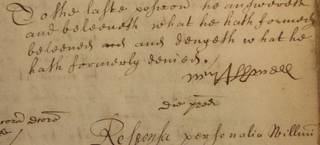 To the laste posicon he answereth
and beleeveth what he hath formerly
beleeved and and denyeth what he
hath formerly denied.
die pred
Responsa personalia Willimi